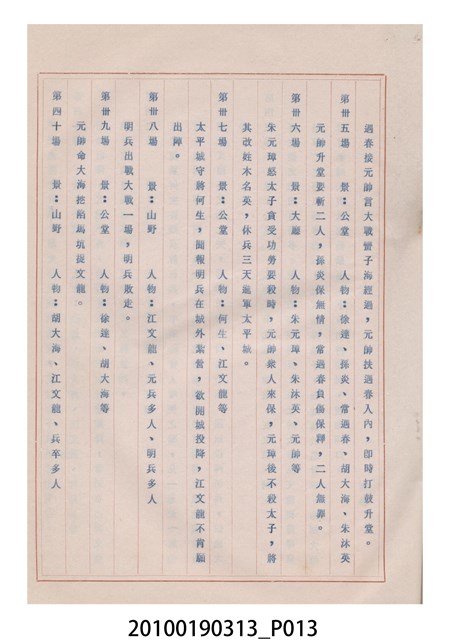 遇春接元帥言大戰蠻子海經過，元帥扶遇春入內，即時打鼓升堂。
第卅五場　景：公堂　人物：徐達、孫炎、常遇春、胡大海、朱沐英
元帥升堂要斬二人，孫炎保無情，常遇春負傷保釋，二人無罪。
第卅六場　景：大廳　人物：朱元璋、朱沐英、元帥等
朱元璋怒太子貪受功勞要殺時，元帥衆人來保，元璋後不殺太子，將
其改姓木名英，休兵三天進軍太平城。
第卅七場　景：公堂　人物：何生、江文龍等
太平城守將何生，聞報明兵在城外紮營，欲開城投降，江文龍不肯願
出陣。
第卅八場　景：山野　人物：江文龍、元兵多人、明兵多人
明兵出戰大戰一場，明兵敗走。
第卅九場　景：公堂　人物：徐達、胡大海等
元帥命大海把陷馬坑捉文龍。
第四十場　景：山野　人物：胡大海、江文龍、兵卒多人
20100190313_P013